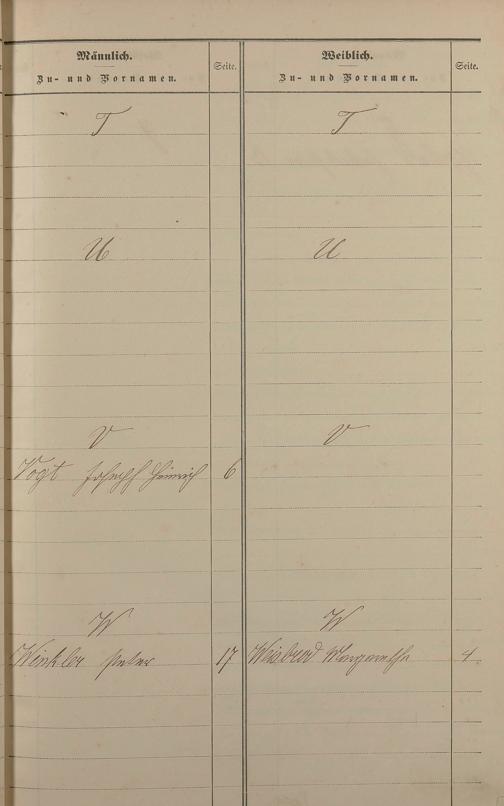 Männlich.
Zu- und Vornamen.
Seite.
Weiblich.
Zu- und Vornamen.
Seite.
T
T
U
U
V
V
Vogt Joseph Heinrich 6
W
W
Winkler Peter 17
Weisbrod Margaretha 4